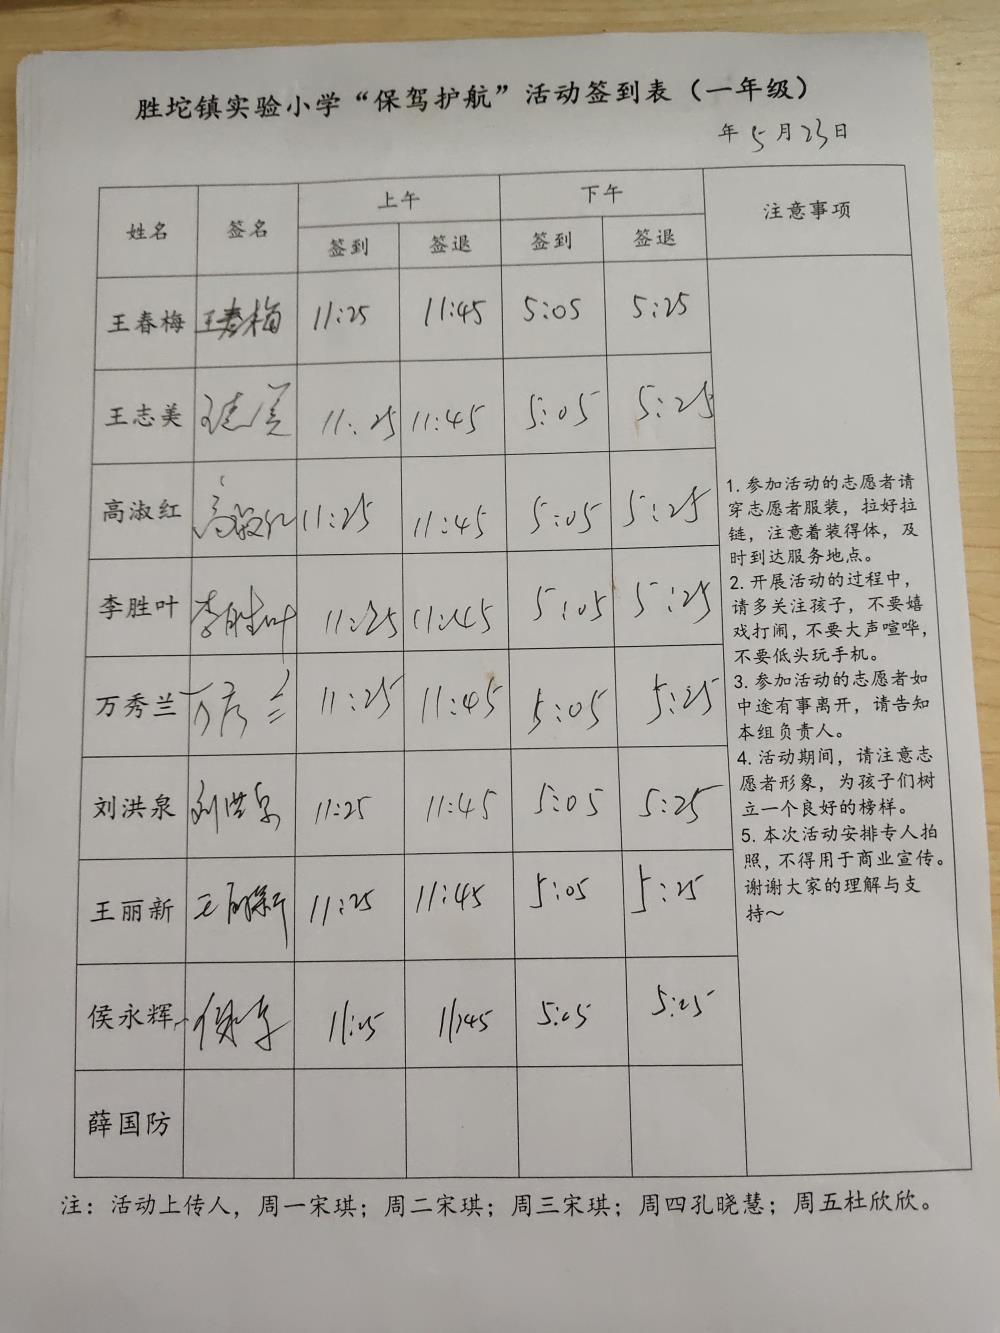 胜坨镇实验小学“保驾护航”活动签到表（一年级）
年 5 月 23 日
姓名 签名 上午 下午 注意事项
签到 签退 签到 签退
王春梅 王春梅 11:25 11:45 5:05 5:25
王志美 王志美 11:25 11:45 5:05 5:25
高淑红 高淑红 11:25 11:45 5:05 5:25
李胜叶 李胜叶 11:25 11:45 5:05 5:25
万秀兰 万秀兰 11:25 11:45 5:05 5:25
刘洪泉 刘洪泉 11:25 11:45 5:05 5:25
王丽新 王丽新 11:25 11:45 5:05 5:25
侯永辉 侯永辉 11:25 11:45 5:05 5:25
薛国防
1. 参加活动的志愿者请
穿志愿者服装，拉好拉
链，注意着装得体，及
时到达服务地点。
2. 开展活动的过程中，
请多关注孩子，不要嬉
戏打闹，不要大声喧哗，
不要低头玩手机。
3. 参加活动的志愿者如
中途有事离开，请告知
本组负责人。
4. 活动期间，请注意志
愿者形象，为孩子们树
立一个良好的榜样。
5. 本次活动安排专人拍
照，不得用于商业宣传。
谢谢大家的理解与支
持～
注：活动上传人，周一宋琪；周二宋琪；周三宋琪；周四孔晓慧；周五杜欣欣。